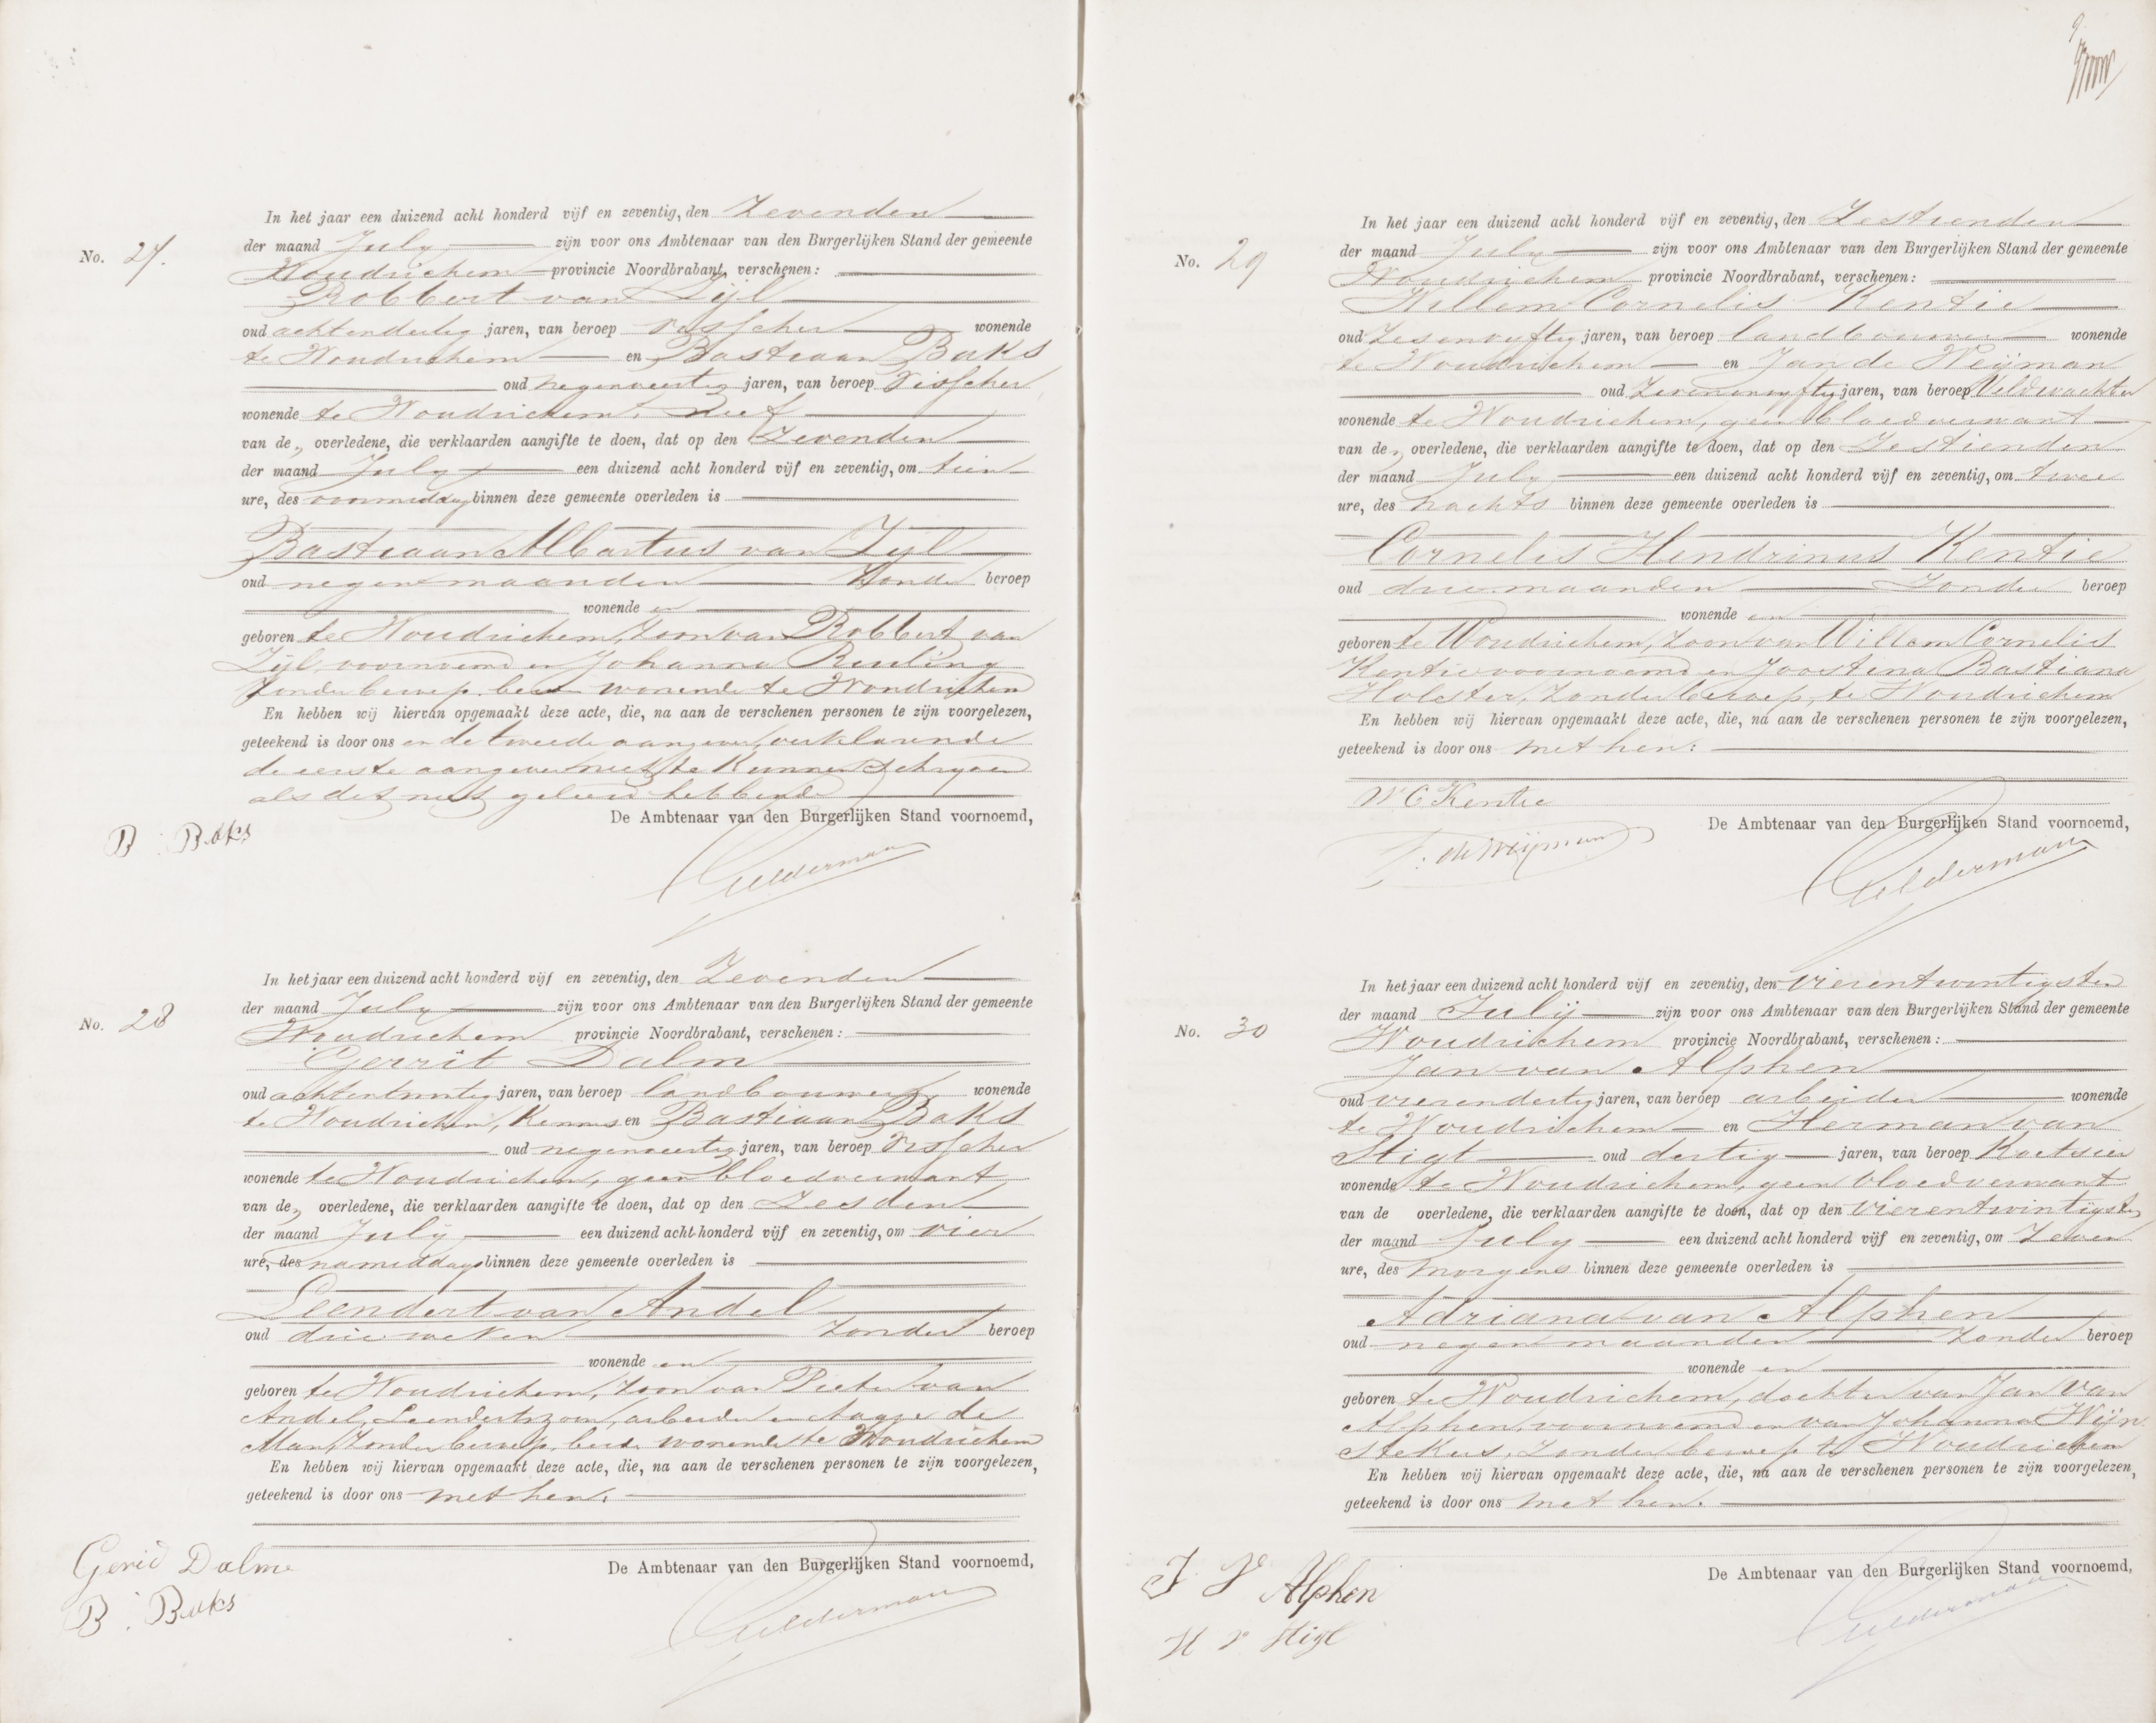 In het jaar een duizend acht honderd vijf en zeventig, den Zevenden
der maand July zijn voor ons Ambtenaar van den Burgerlijken Stand der gemeente
No. 27.
Woudrichem provincie Noordbrabant, verschenen:
Robbert van Zijl
oud achtendertig jaren, van beroep visscher wonende
te Woudrichem en Bastiaan Baks
oud negenveertig jaren, van beroep Visscher
wonende te Woudrichem, neef
van de overledene, die verklaarden aangifte te doen, dat op den Zevenden
der maand July een duizend acht honderd vijf en zeventig, om tien
ure, des voormiddags binnen deze gemeente overleden is
Bastiaan Albartus van Zijl
oud negen maanden Zonder beroep
wonende en
geboren te Woudrichem, zoon van Robbert van
Zijl, voornoemd en Johanna
Zonder beroep, beide wonende te Woudrichem
En hebben wij hiervan opgemaakt deze acte, die, na aan de verschenen personen te zijn voorgelezen,
geteekend is door ons en de tweede aangever, verklarende
de eerste aangever niet te kunnen schryven
als dit niet geleerd hebbende
De Ambtenaar van den Burgerlijken Stand voornoemd,
B : Baks
Gelderman
In het jaar een duizend acht honderd vijf en zeventig, den Zevenden
der maand July zijn voor ons Ambtenaar van den Burgerlijken Stand der gemeente
No. 28
Woudrichem provincie Noordbrabant, verschenen:
Gerrit Dalm
oud achtentwintig jaren, van beroep landbouwer, wonende
te Woudrichem, Kennis en Bastiaan Baks
oud negenveertig jaren, van beroep Visscher
wonende te Woudrichem, geen bloedverwant
van de overledene, die verklaarden aangifte te doen, dat op den Zesden
der maand July een duizend acht honderd vijf en zeventig, om vier
ure, des namiddags binnen deze gemeente overleden is
Leendert van Andel
oud drie weken Zonder beroep
wonende en
geboren te Woudrichem, zoon van Pieter van
Andel, Leendertszoon, arbeider en Aagje de
Man, Zonder beroep, beide wonende te Woudrichem
En hebben wij hiervan opgemaakt deze acte, die, na aan de verschenen personen te zijn voorgelezen,
geteekend is door ons met hen.
Gerid Dalme
De Ambtenaar van den Burgerlijken Stand voornoemd,
B : Baks
Gelderman
In het jaar een duizend acht honderd vijf en zeventig, den Zestienden
der maand July zijn voor ons Ambtenaar van den Burgerlijken Stand der gemeente
No. 29
Woudrichem provincie Noordbrabant, verschenen:
Willem Cornelis Kentie
oud Zesenvyftig jaren, van beroep landbouwer wonende
te Woudrichem en Jan de Weijman
oud Zevenenvyftig jaren, van beroep Veldwachter
wonende te Woudrichem, geen bloedverwant
van de overledene, die verklaarden aangifte te doen, dat op den Zestienden
der maand July een duizend acht honderd vijf en zeventig, om twee
ure, des nachts binnen deze gemeente overleden is
Cornelis Hendrinus Kentie
oud drie maanden Zonder beroep
wonende en
geboren te Woudrichem, zoon van Willem Cornelis
Kentie voornoemd en Joostina Bastiana
Holster, Zonder beroep, te Woudrichem
En hebben wij hiervan opgemaakt deze acte, die, na aan de verschenen personen te zijn voorgelezen,
geteekend is door ons met hen.
W C Kentie
De Ambtenaar van den Burgerlijken Stand voornoemd,
J. de Weijman
Gelderman
In het jaar een duizend acht honderd vijf en zeventig, den vierentwintigsten
der maand July zijn voor ons Ambtenaar van den Burgerlijken Stand der gemeente
No. 30
Woudrichem provincie Noordbrabant, verschenen:
Jan van Alphen
oud vierendertig jaren, van beroep arbeider wonende
te Woudrichem en Herman van
Stigt oud dertig jaren, van beroep Koetsier
wonende te Woudrichem, geen bloedverwant
van de overledene, die verklaarden aangifte te doen, dat op den vierentwintigsten
der maand July een duizend acht honderd vijf en zeventig, om Zeven
ure, des morgens binnen deze gemeente overleden is
Adriana van Alphen
oud negen maanden Zonder beroep
wonende en
geboren te Woudrichem, dochter van Jan van
Alphen, voornoemd en van Johanna Wijn
stekers, Zonder beroep te Woudrichem
En hebben wij hiervan opgemaakt deze acte, die, na aan de verschenen personen te zijn voorgelezen,
geteekend is door ons met hen.
De Ambtenaar van den Burgerlijken Stand voornoemd,
J V Alphen
Gelderman
H v Stigt